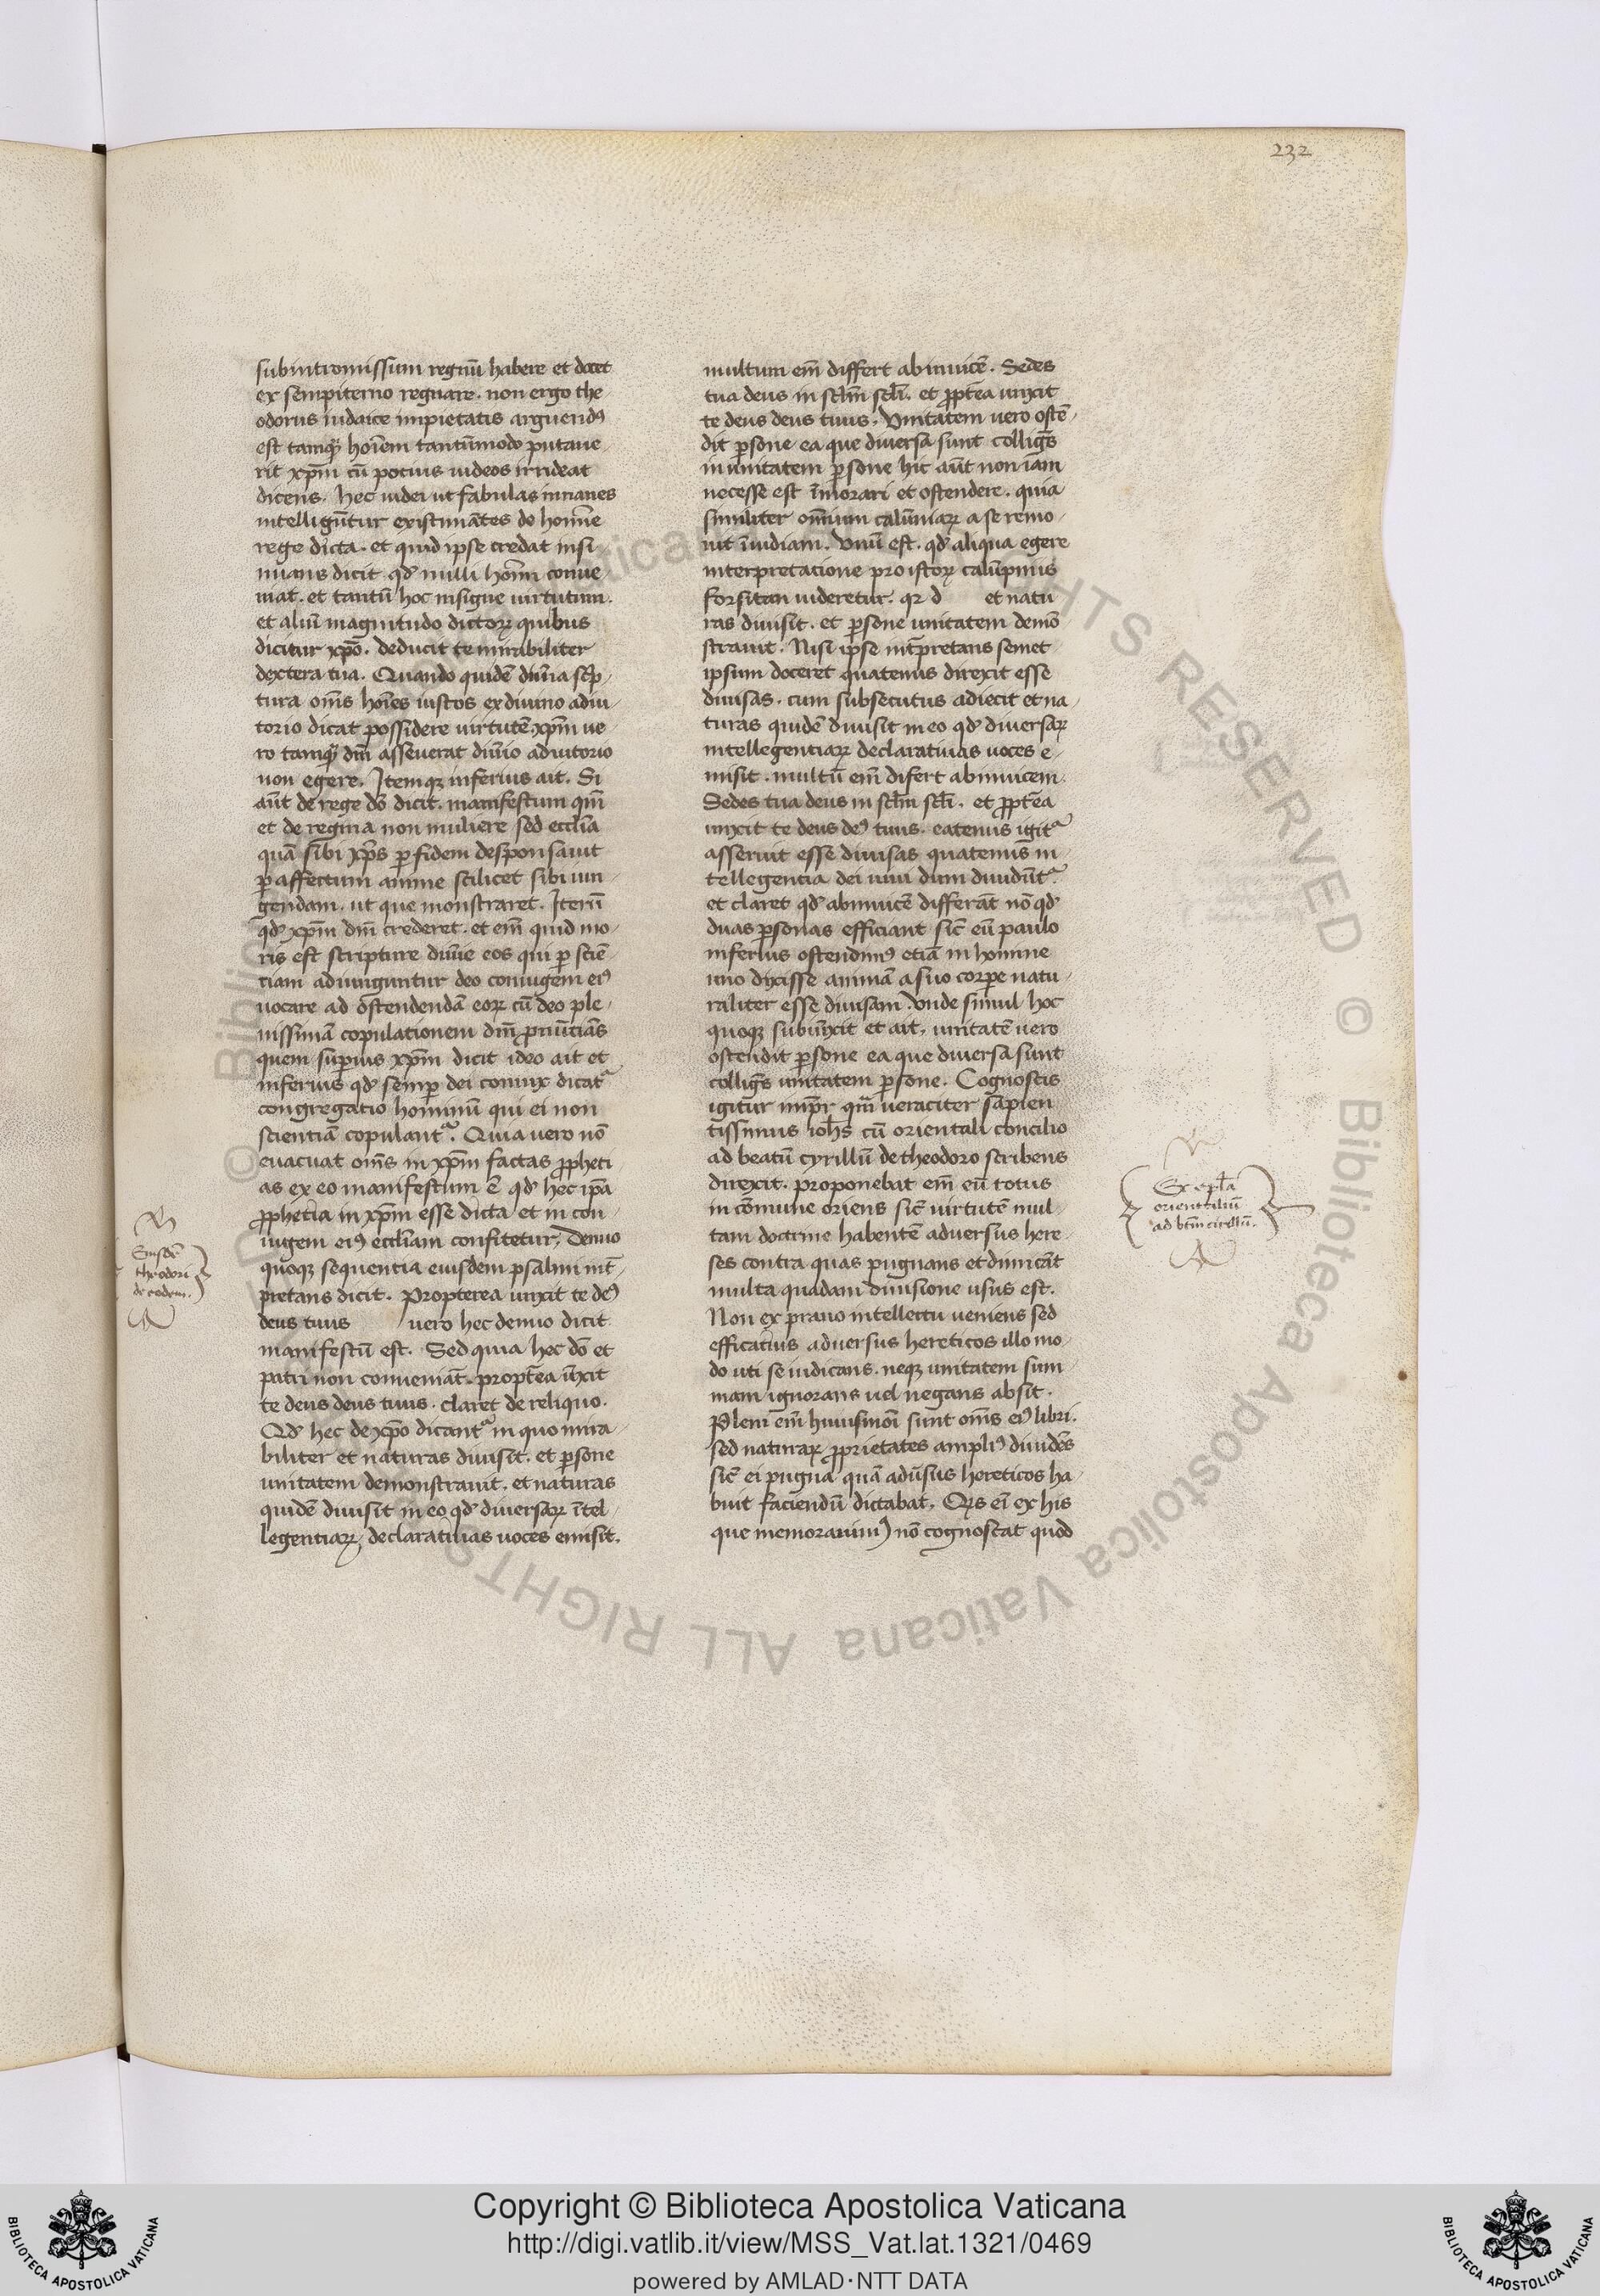 232
subintromissum regnū habere et docet
ex sempiterno regnare. non ergo the
odorus iudaice impietatis arguendꝰ
est tamqȝ hoīem tantūmodo putaue
rit xp̄m cū pocius iudeos irrideat
dicens. hec iudei ut fabulas innanes
intelligūtur existimātes de homīne
rege dicta. et quid ipse credat insi
nuans dicit qđ nulli homī conue
niat. et tantū hoc insigne uirtutum.
et aliū magnitudo dictoꝝ quibus
dicitur xp̄o. deducit te mirabiliter
dextera tua. Quando quidē diuīa scrip
tura om̄s hoīes iustos ex diuino adiu
torio dicat possidere uirtutē xp̄m ue
ro tamqȝ dn̄m asseuerat diuīo adiutorio
non egere. Itemqȝ inferius ait. Si
aūt de rege dō dicit. manifestum qm̄
et de regina non muliere sed eccl̄ia
quā sibi xp̄s ꝑ fidem desponsauit
ꝑ affectum anime scilicet sibi iun
gendam. ut que monstraret. Iterū
qđ xp̄m dn̄m crederet. et em̄ quid mo
ris est scripture diuīe eos qui ꝑ sciē
tiam adiunguntur deo coniugem eiꝰ
uocare ad ostendendā eoꝝ cū deo ple
nissimā copulationem dn̄m ꝓnūtiās
quem suꝑius xp̄m dicit ideo ait et
inferius qđ semꝑ dei coniux dicat᷑
congregatio hominū qui ei non
scientiā copulant᷑. Quia uero nō
euacuat om̄s in xp̄m factas ꝓpheti
as ex eo manifestum ē qđ hec ip̄a
ꝓphetia in xp̄m esse dicta et in con
iugem eiꝰ eccl̄iam confitetur. Denuo
quoqȝ sequentia eiusdem psalmi int̄
pretans dicit. Propterea unxit te deꝰ
deus tuus uero hec denuo dicit
manifestū est. Sed quia hec dō et
patri non conueniāt. propt̄ea ūxit
te deus deus tuus. claret de reliquo.
Qđ hec de xp̄o dicant᷑ in quo mira
biliter et naturas diuisit. et ꝑsone
unitatem demonstrauit. et naturas
quidē diuisit in eo qđ diuersaꝝ ītel
legentiaꝝ declaratiuas uoces emisit.
Eiusdē
theodori
de eodem.
multum em̄ differt abinuicē. Sedes
tua deus in sclm̄ scl̄i. et ꝓpt̄ea unxit
te deus deus tuus. Vnitatem uero ostē
dit ꝑsone ea que diuersa sunt colligēs
in unitatem ꝑsone hic aūt non iam
necesse est īmorari et ostendere. quia
similiter omīum calūniaꝝ a se remo
uit īuidiam. Vnū est. qđ aliqua egere
interpretacione pro istoꝝ calūpniis
forsitan uideretur. qꝛ d et natu
ras diuisit. et ꝑsone unitatem demō
strauit. Nisi ipse int̄pretans semet
ipsum doceret quatenus direxit esse
diuisas. cum subsecutus adiecit et na
turas quidē diuisit in eo qđ diuersaꝝ
intellegentiaꝝ declaratiuas uoces e
misit. multū em̄ difert abinuicem.
Sedes tua deus in sclm̄ scl̄i. et ꝓpt̄ea
unxit te deus deꝰ tuus. eatenus igit᷑
asseruit esse diuisas quatenus in
tellegentia dei uiui dum diuidūt᷑.
et claret qđ abinuicē differāt nō qđ
duas ꝑsonas efficiant sic̄ eū paulo
inferius ostendimꝰ etiā in homine
uno dixisse animā a suo corpe natu
raliter esse diuisam. Vnde simul hoc
quoqȝ subiūxit et ait. unitatē uero
ostendit ꝑsone ea que diuersa sunt
colligēs unitatem ꝑsone. Cognoscis
igitur imꝑr qm̄ ueraciter sapien
tissimus ioh̄s cū orientali concilio
ad beatū cyrillū de theodoro scribens
direxit. proponebat em̄ eū totus
in cōmune oriens sic̄ uirtutē mul
tam doctrine habentē aduersus here
ses contra quas pugnans et dimicāt
multa quadam diuisione usus est.
Non ex prauo intellectu ueniens sed
efficatius aduersus hereticos illo mo
do uti se iudicans. neqȝ unitatem sum
mam ignorans uel negans absit.
Pleni em̄ huiusmōi sunt om̄s eiꝰ libri.
sed naturaꝝ ꝓprietates ampliꝰ diuidēs
sic̄ ei pugna quā adūsus hereticos ha
buit faciendū dictabat. Qis eī ex his
que memorauimꝰ nō cognoscat quod
Ex epl̄a
orientaliū
ad btm̄ cirillū.
Copyright © Biblioteca Apostolica Vaticana
http://digi.vatlib.it/view/MSS_Vat.lat.1321/0469
powered by AMLAD·NTT DATA
BIBLIOTECA APOSTOLICA VATICANA
BIBLIOTECA APOSTOLICA VATICANA
© Biblioteca Apostolica Vaticana ALL RIGHTS RESERVED © Biblioteca Apostolica Vaticana ALL RIGHTS